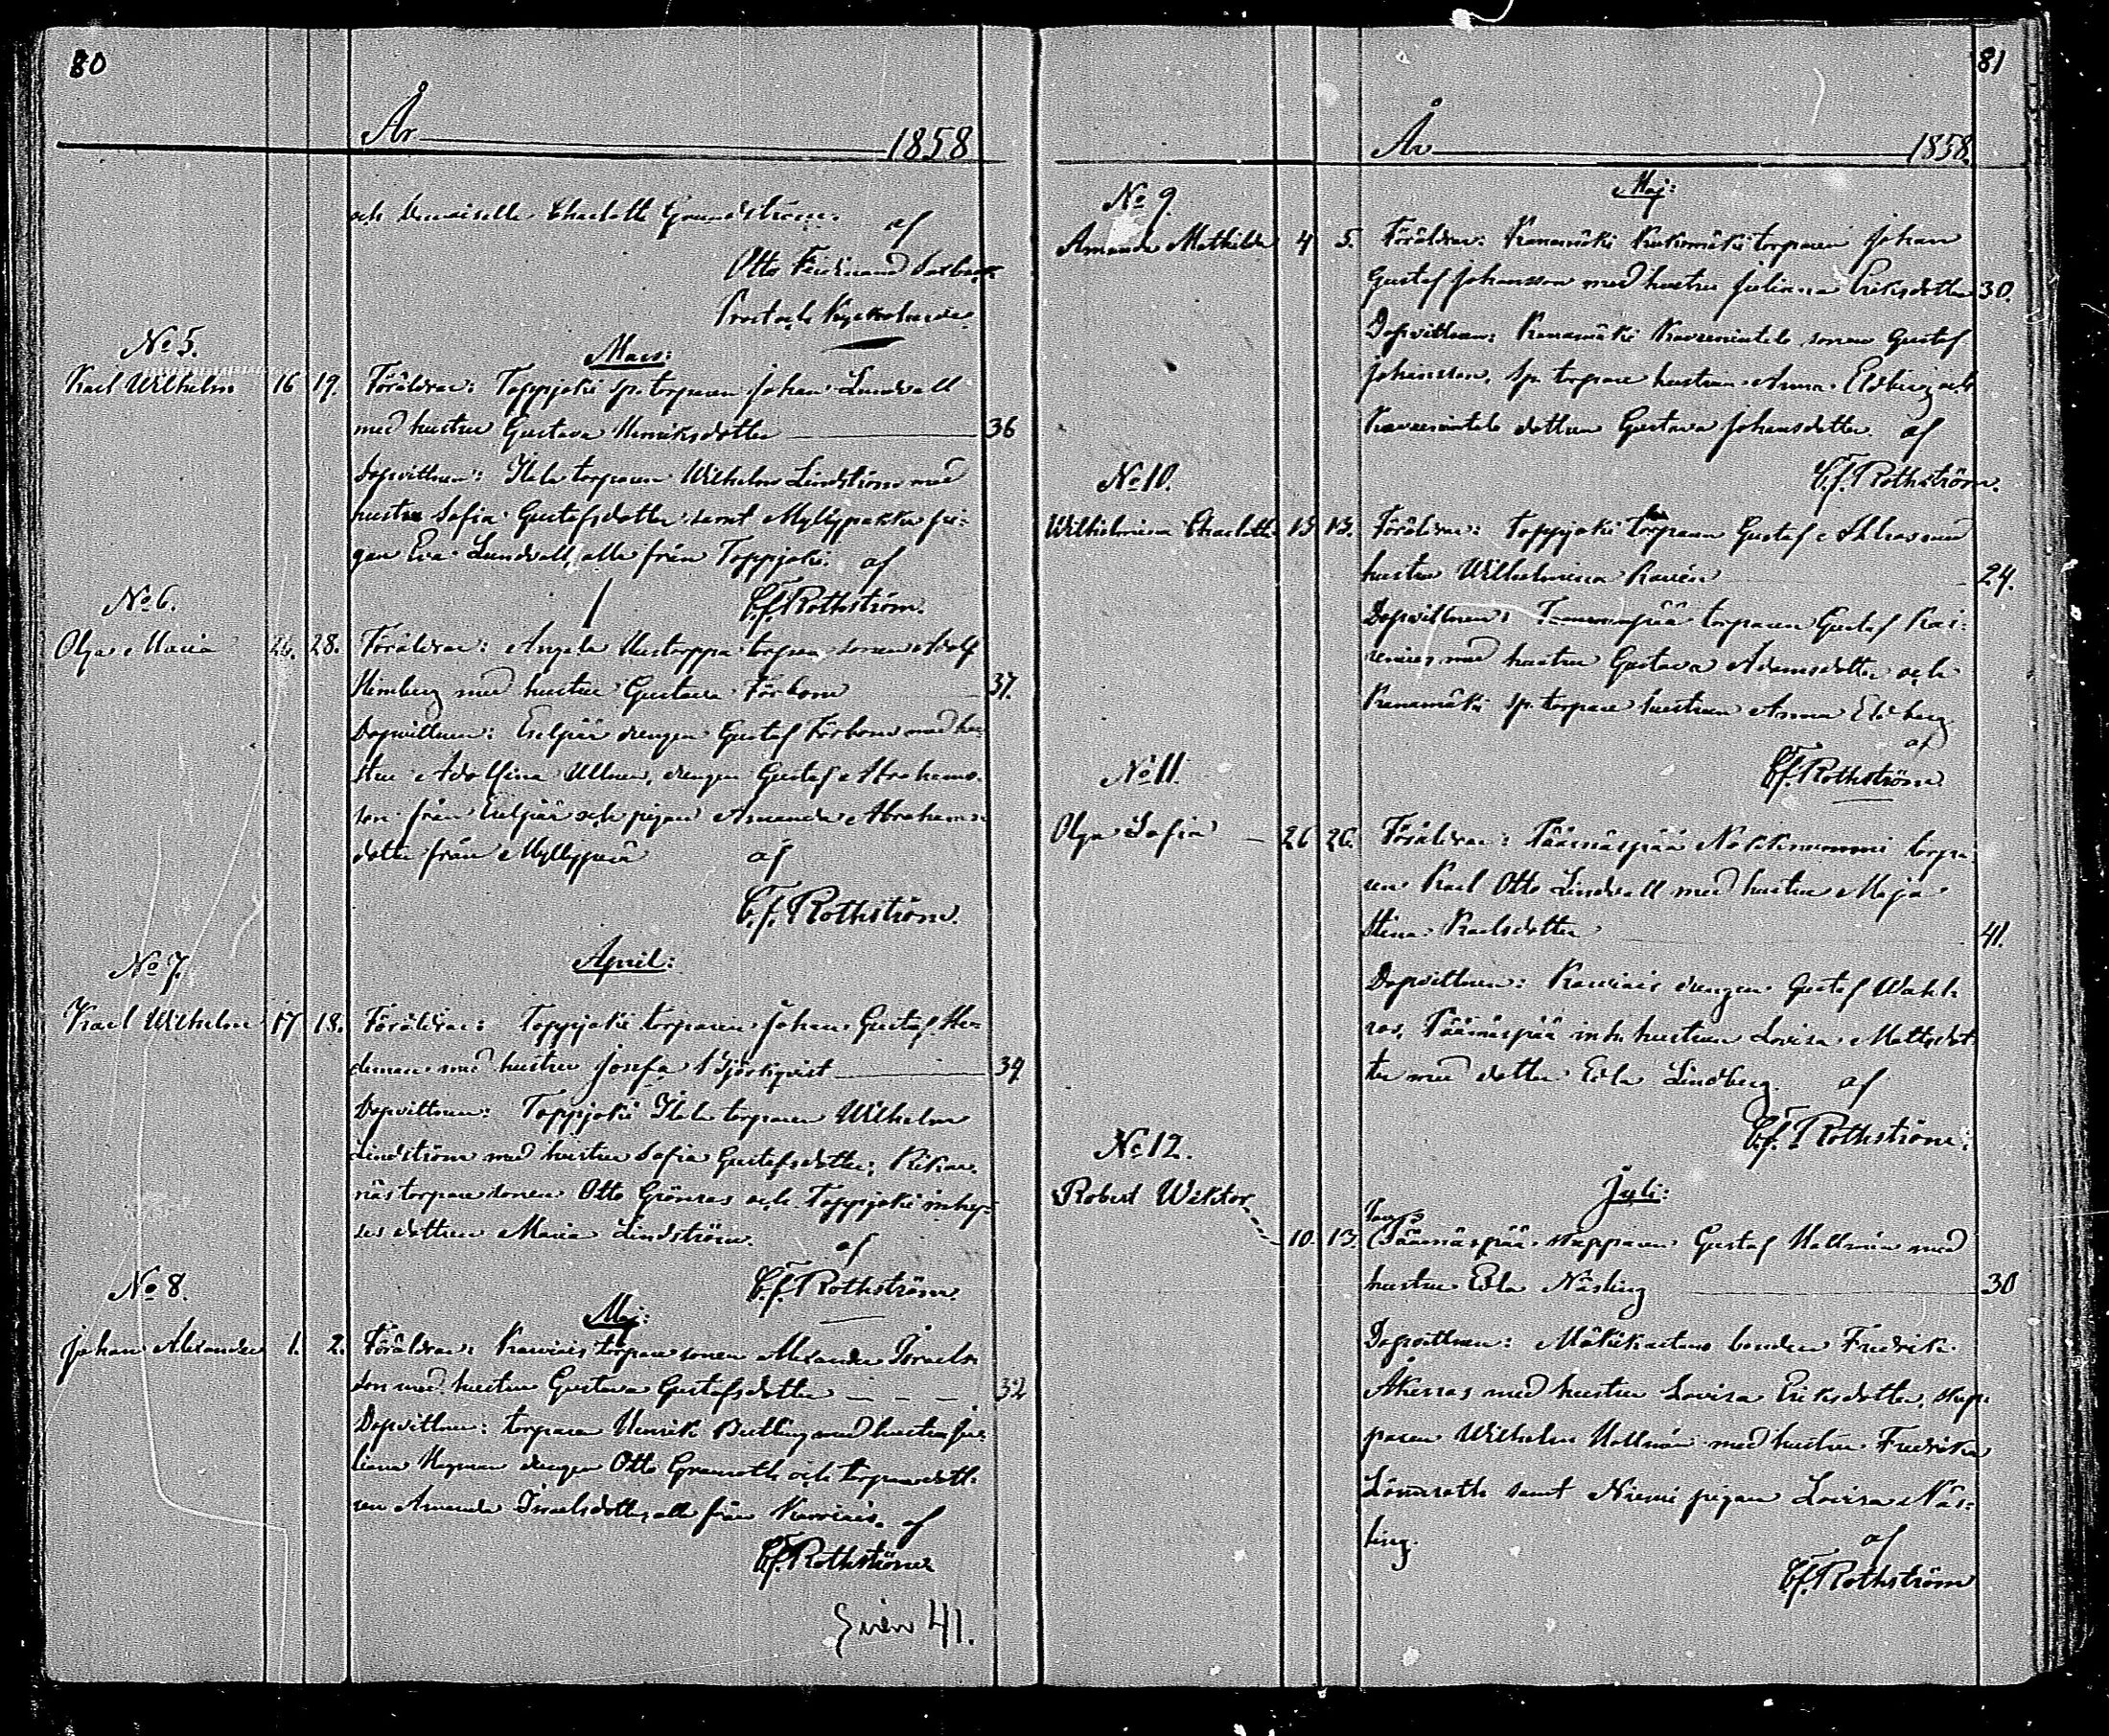 80
År 1858
och Demoiselle Charlotte Grundström. af
Otto Ferdinand
Prost och Kyrkoherde
No 5.
Mars:
Karl Wilhelm 16 19. Föräldrar: Toppjoki sp. torparen Johan Lundvall
med hustru Gustava Henriksdotter 36
Dopvittnen: Ylele torparen Wilhelm Lindström med
hustru Sofia Gustafsdotter samt pi-
gan Eva Lundvall, alla från Toppjoki. af
C. f. Rothström.
No 6.
Olga Maria 26. 28. Föräldrar: Angela torpare sonen Adolf
med hustru Gustava Förbom 37.
Dopvittnen: drengen Gustaf Förbom med hu-
stru Adolfina Ullner, drengen Gustaf Abrahams-
son från och pigan Amanda Abrahams-
dotter från Myllyperä af
C. f. Rothström.
April:
No 7.
Karl Wilhelm 17 18. Föräldrar: Toppjoki torparen Johan Gustaf He-
deman med hustru Josefa Björkqvist 39
Dopvittnen: Toppjoki Ylele torparen Wilhelm
Lindström med hustru Sofia Gustafsdotter,
näs torpare sonen Otto Grönroos och Toppjoki inhy-
ses dottren Maria Lindström. af
C. f. Rothström.
No 8.
Maj:
Johan Alexander 1. 2. Föräldrar: Karviais torpare sonen Alexander Israels-
son med hustru Gustava Gustafsdotter 32
Dopvittnen: torparen Henrik med hustru Ju-
liana drengen Otto Granroth och torpare dott-
ren Amanda Israelsdotter, alla från Karviais. af
C. f. Rothström
41.
81
År 1858.
No 9.
Maj:
Amanda Mathilda 4 5. Föräldrar: Kanamäki torparen Johan
Gustaf Johansson med hustru Juliana Eriksdotter 30.
Dopvittnen: Kanamäki sonen Gustaf
Johansson, sp. torpare hustrun Anna Edberg och
dottren Gustava Johansdotter. af
C. f. Rothström.
No 10.
Wilhelmina Charlotta 13 13. Föräldrar: Toppjoki torparen Gustaf med
hustru Wilhelmina 24.
Dopvittnen: torparen Gustaf Kar-
med hustru Gustava Adamsdotter och
Kanamäki sp. torpare hustrun Anna Edberg
af
C. f. Rothström
No 11.
Olga Sofia 26 26. Föräldrar: Päärnäspää Nokkanummi torpa-
ren Karl Otto Lindvall med hustru Maja
Stina Karlsdotter 41.
Dopvittnen: Karviais drengen Gustaf Wahl-
ros, Päärnäspää inh. hustrun Lovisa Mattsdot-
ter med dotter Edla Lindberg. af
C. f. Rothström.
No 12.
Juli:
Robert Wiktor 10. 13. Päärnäspää skepparen Gustaf Hallman med
hustru Edla Näsling 30
Dopvittnen: bonden Fredrik
Åkerros med hustru Lovisa Eriksdotter, skep-
paren Wilhelm Hallman med hustru Fredrika
Lönnroth samt Niemi pigan Lovisa Näs-
ling. af
C. f. Rothström